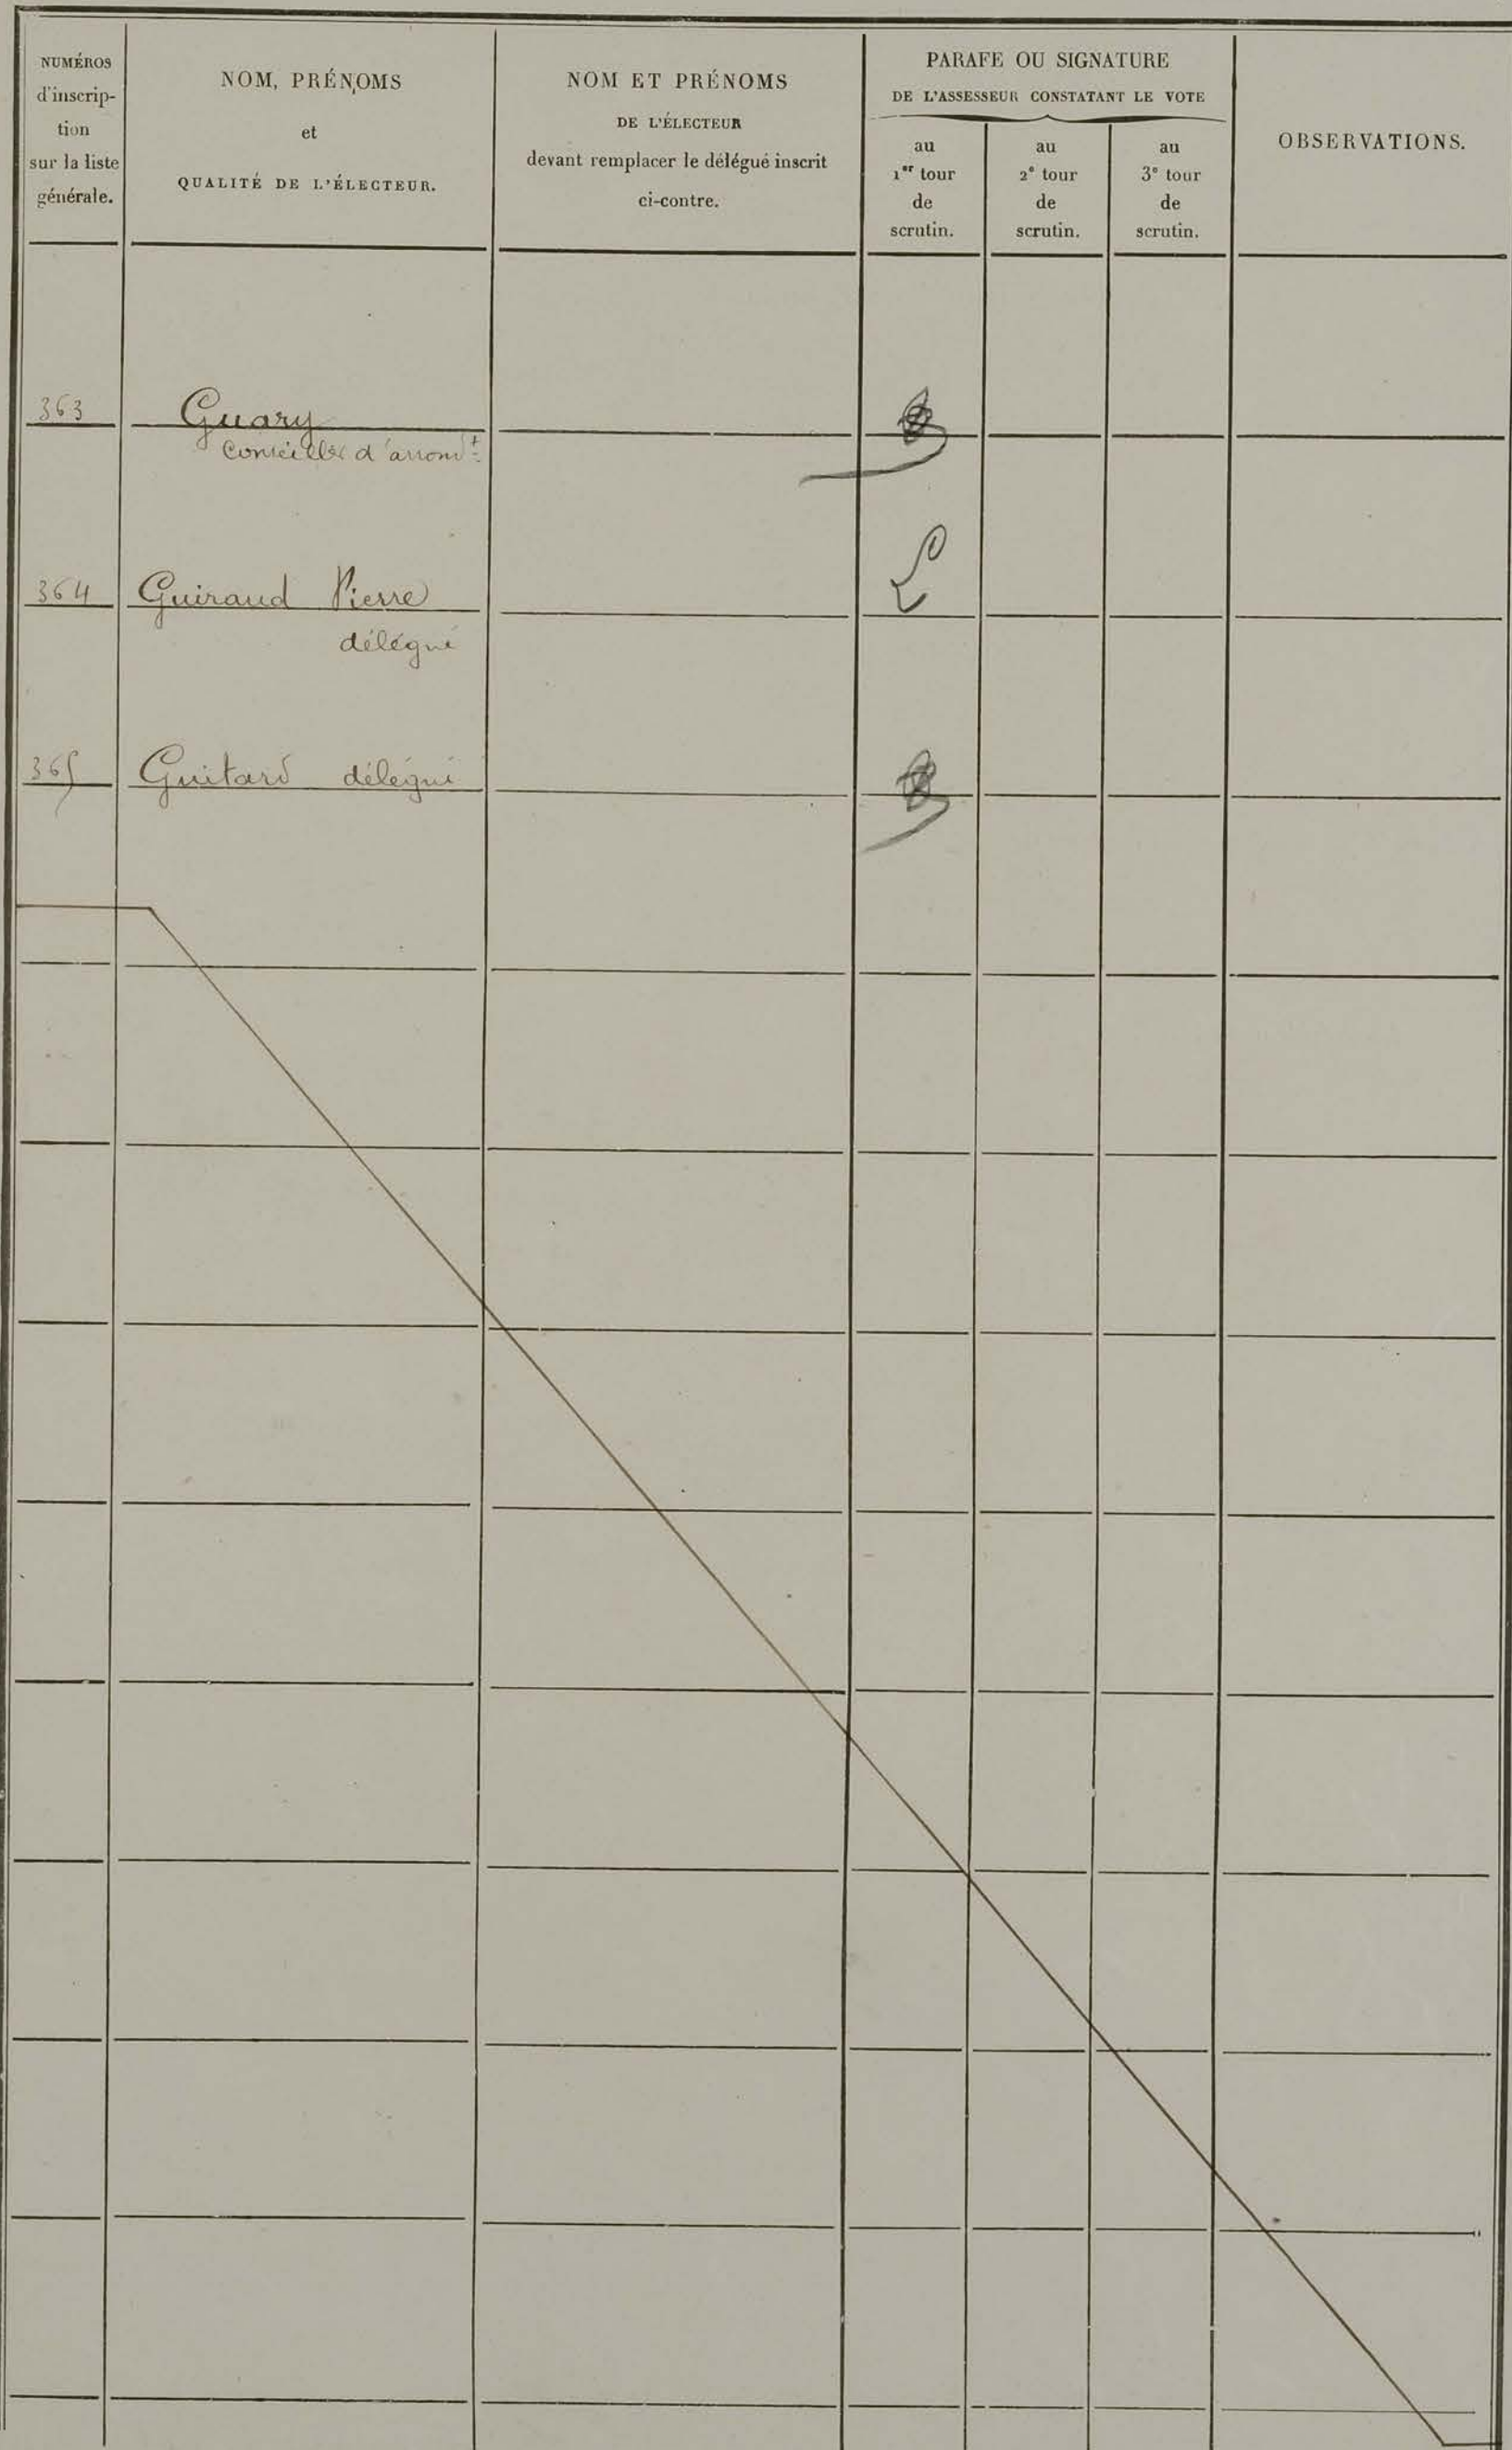 NUMÉROS
d'inscrip-
tion
sur la liste
générale.
NOM, PRÉNOMS
et
QUALITÉ DE L'ÉLECTEUR.
NOM ET PRÉNOMS
DE L'ÉLECTEUR
devant remplacer le délégué inscrit
ci-contre.
PARAFE OU SIGNATURE
DE L'ASSESSEUR CONSTATANT LE VOTE
au
1er tour
de
scrutin.
au
2e tour
de
scrutin.
au
3e tour
de
scrutin.
OBSERVATIONS.
363 Guary
Conseiller d'arrondt
364 Guiraud Pierre
délégué
365 Guitard délégué